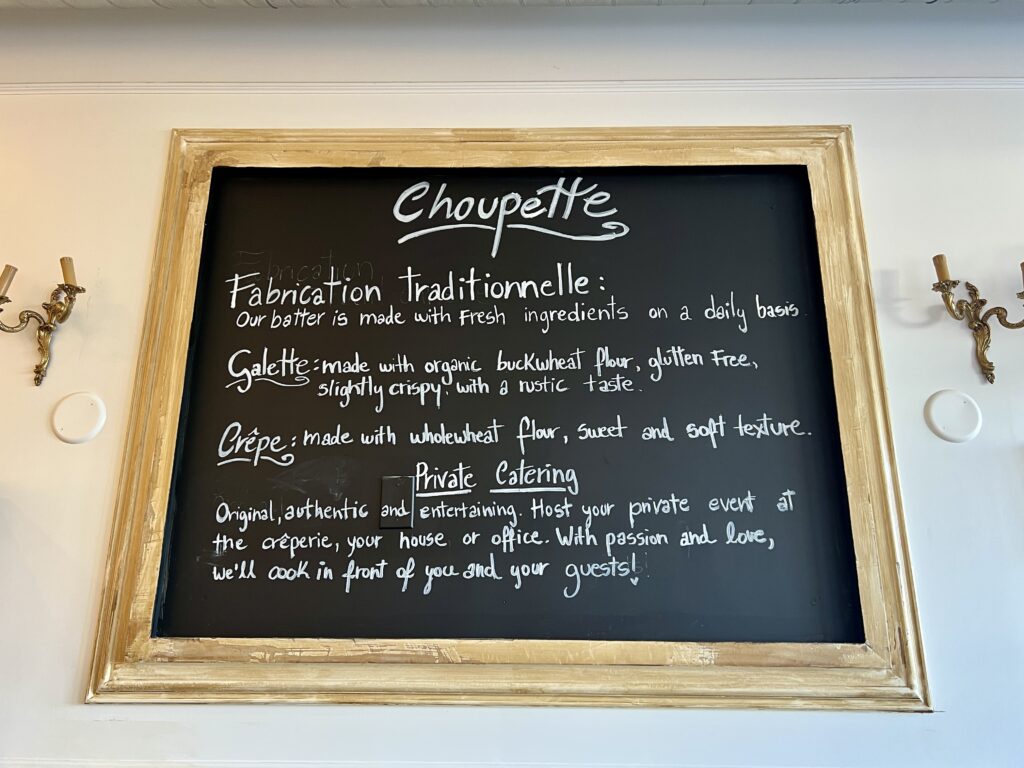 Choupette
Fabrication Traditionnelle:
Our batter is made with Fresh ingredients on a daily basis.
Galette: made with organic buckwheat flour, glutten Free,
slightly crispy, with a rustic taste.
Crêpe: made with wholewheat flour, sweet and soft texture.
Private Catering
Original, authentic and entertaining. Host your private event at
the crêperie, your house or office. With passion and love,
we'll cook in front of you and your guests!